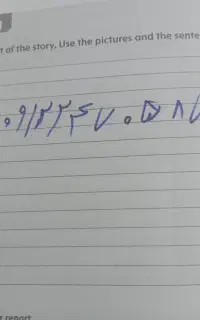 t of the story, Use the pictures and the sente
۰۹۱۲۲۴۷۰۵۸۷
r report